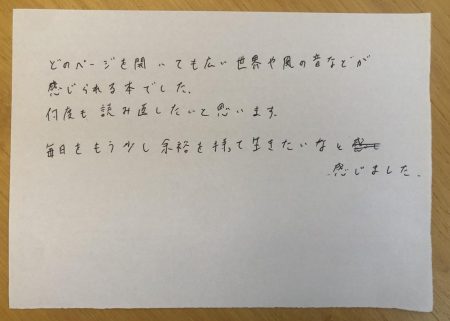 どのページを開いても広い世界や風の音などが
感じられる本でした.
何度も読み直したいと思います.
毎日をもう少し余裕を持って生きたいなと
感じました.